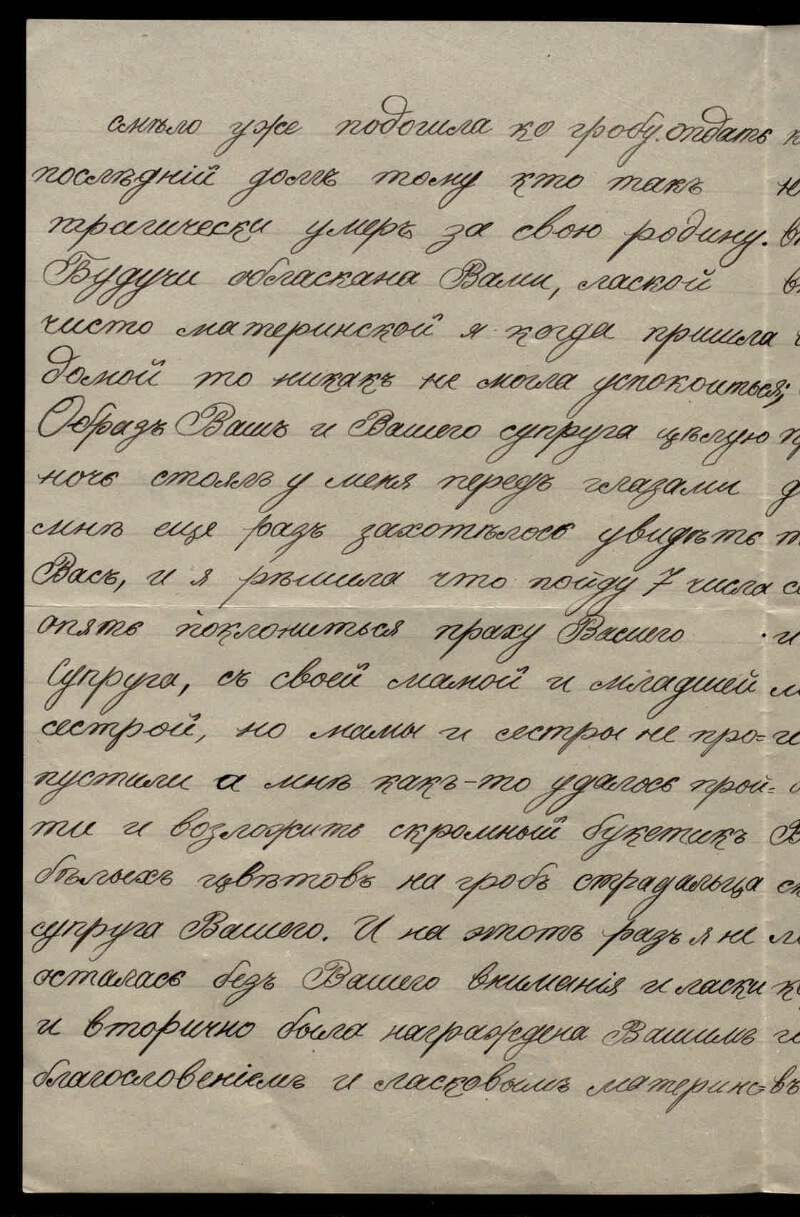 смѣло уже подошла ко гробу. отдать
послѣдній долгъ тому кто такъ
трагически умеръ за свою родину.
Будучи обласкана Вами, лаской
чисто материнской я когда пришла
домой то никакъ не могла успокоиться;
Образъ Вашъ и Вашего супруга цѣлую
ночь стоялъ у меня передъ глазами
мнѣ еще разъ захотѣлось увидѣть
Васъ, и я рѣшила что пойду 7 числа
опять поклониться праху Вашего
Супруга, съ своей мамой и младшей
сестрой, но мамы и сестры не про=
пустили а мнѣ какъ-то удалось прой=
ти и возложить скромный букетикъ
бѣлыхъ цвѣтовъ на гробъ страдальца
супруга Вашего. И на этотъ разъ я не
осталась безъ Вашего вниманія и ласки
и вторично была награждена Вашимъ
благословеніемъ и ласковымъ материнс=